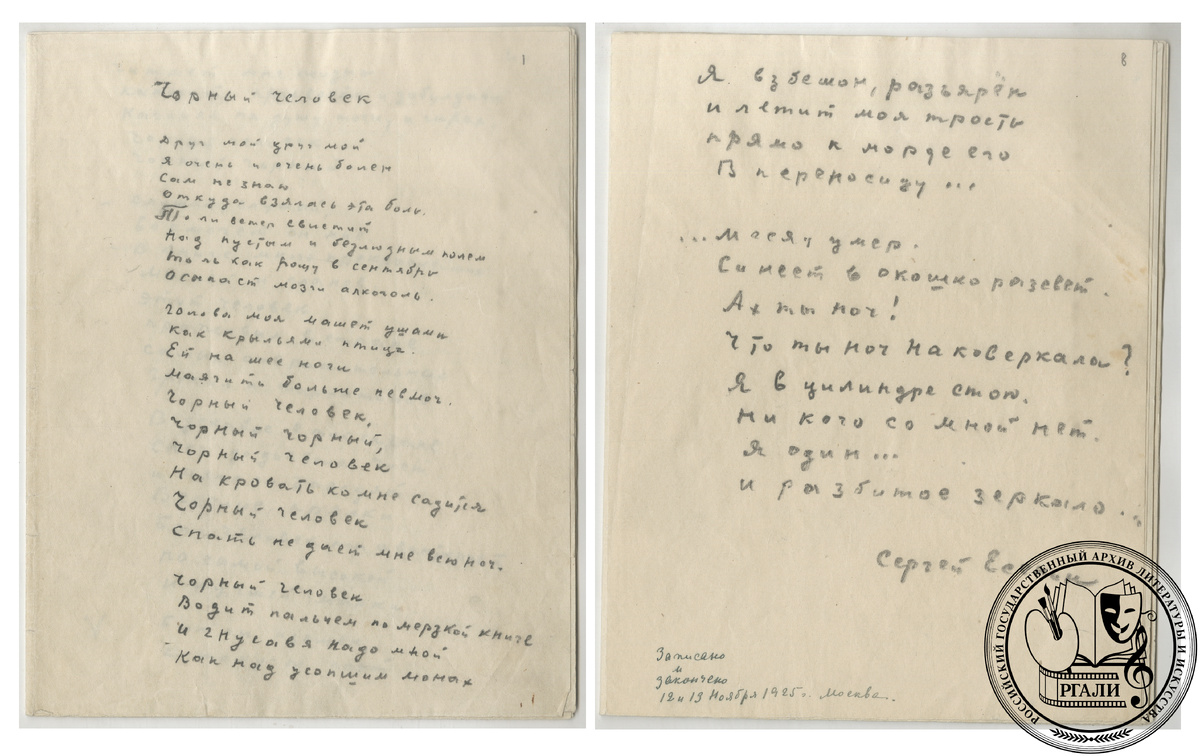 1
Чорный человек
Друг мой друг мой
Я очень и очень болен
Сам не знаю
Откуда взялась эта боль.
То ли ветер свистит
Над пустым и безлюдным полем
То ль как рощу в сентябрь
Осыпает мозги алкоголь.
Голова моя машет ушами
Как крыльями птица.
Ей на шее ноги
Маячить больше невмоч.
Чорный человек,
Чорный чорный,
Чорный человек
На кровать ко мне садится
Чорный человек
Спать не дает мне всю ноч.
Чорный человек
Водит пальцем по мерзкой книге
И гнусавя надо мной
Как над усопшим монах
8
Я взбешон, разъярён
и летит моя трость
прямо к морде его
В переносицу ...
...Месяц умер.
Синеет в окошко разсвет.
Ах ты ноч!
Что ты ноч наковеркала?
Я в цилиндре стою.
Ни кого со мной нет.
Я один ...
И разбитое зеркало ...
Сергей Есенин
Записано
и
закончено
12 и 13 Ноября 1925г. Москва.
РОССИЙСКИЙ ГОСУДАРСТВЕННЫЙ АРХИВ ЛИТЕРАТУРЫ И ИСКУССТВА
РГАЛИ